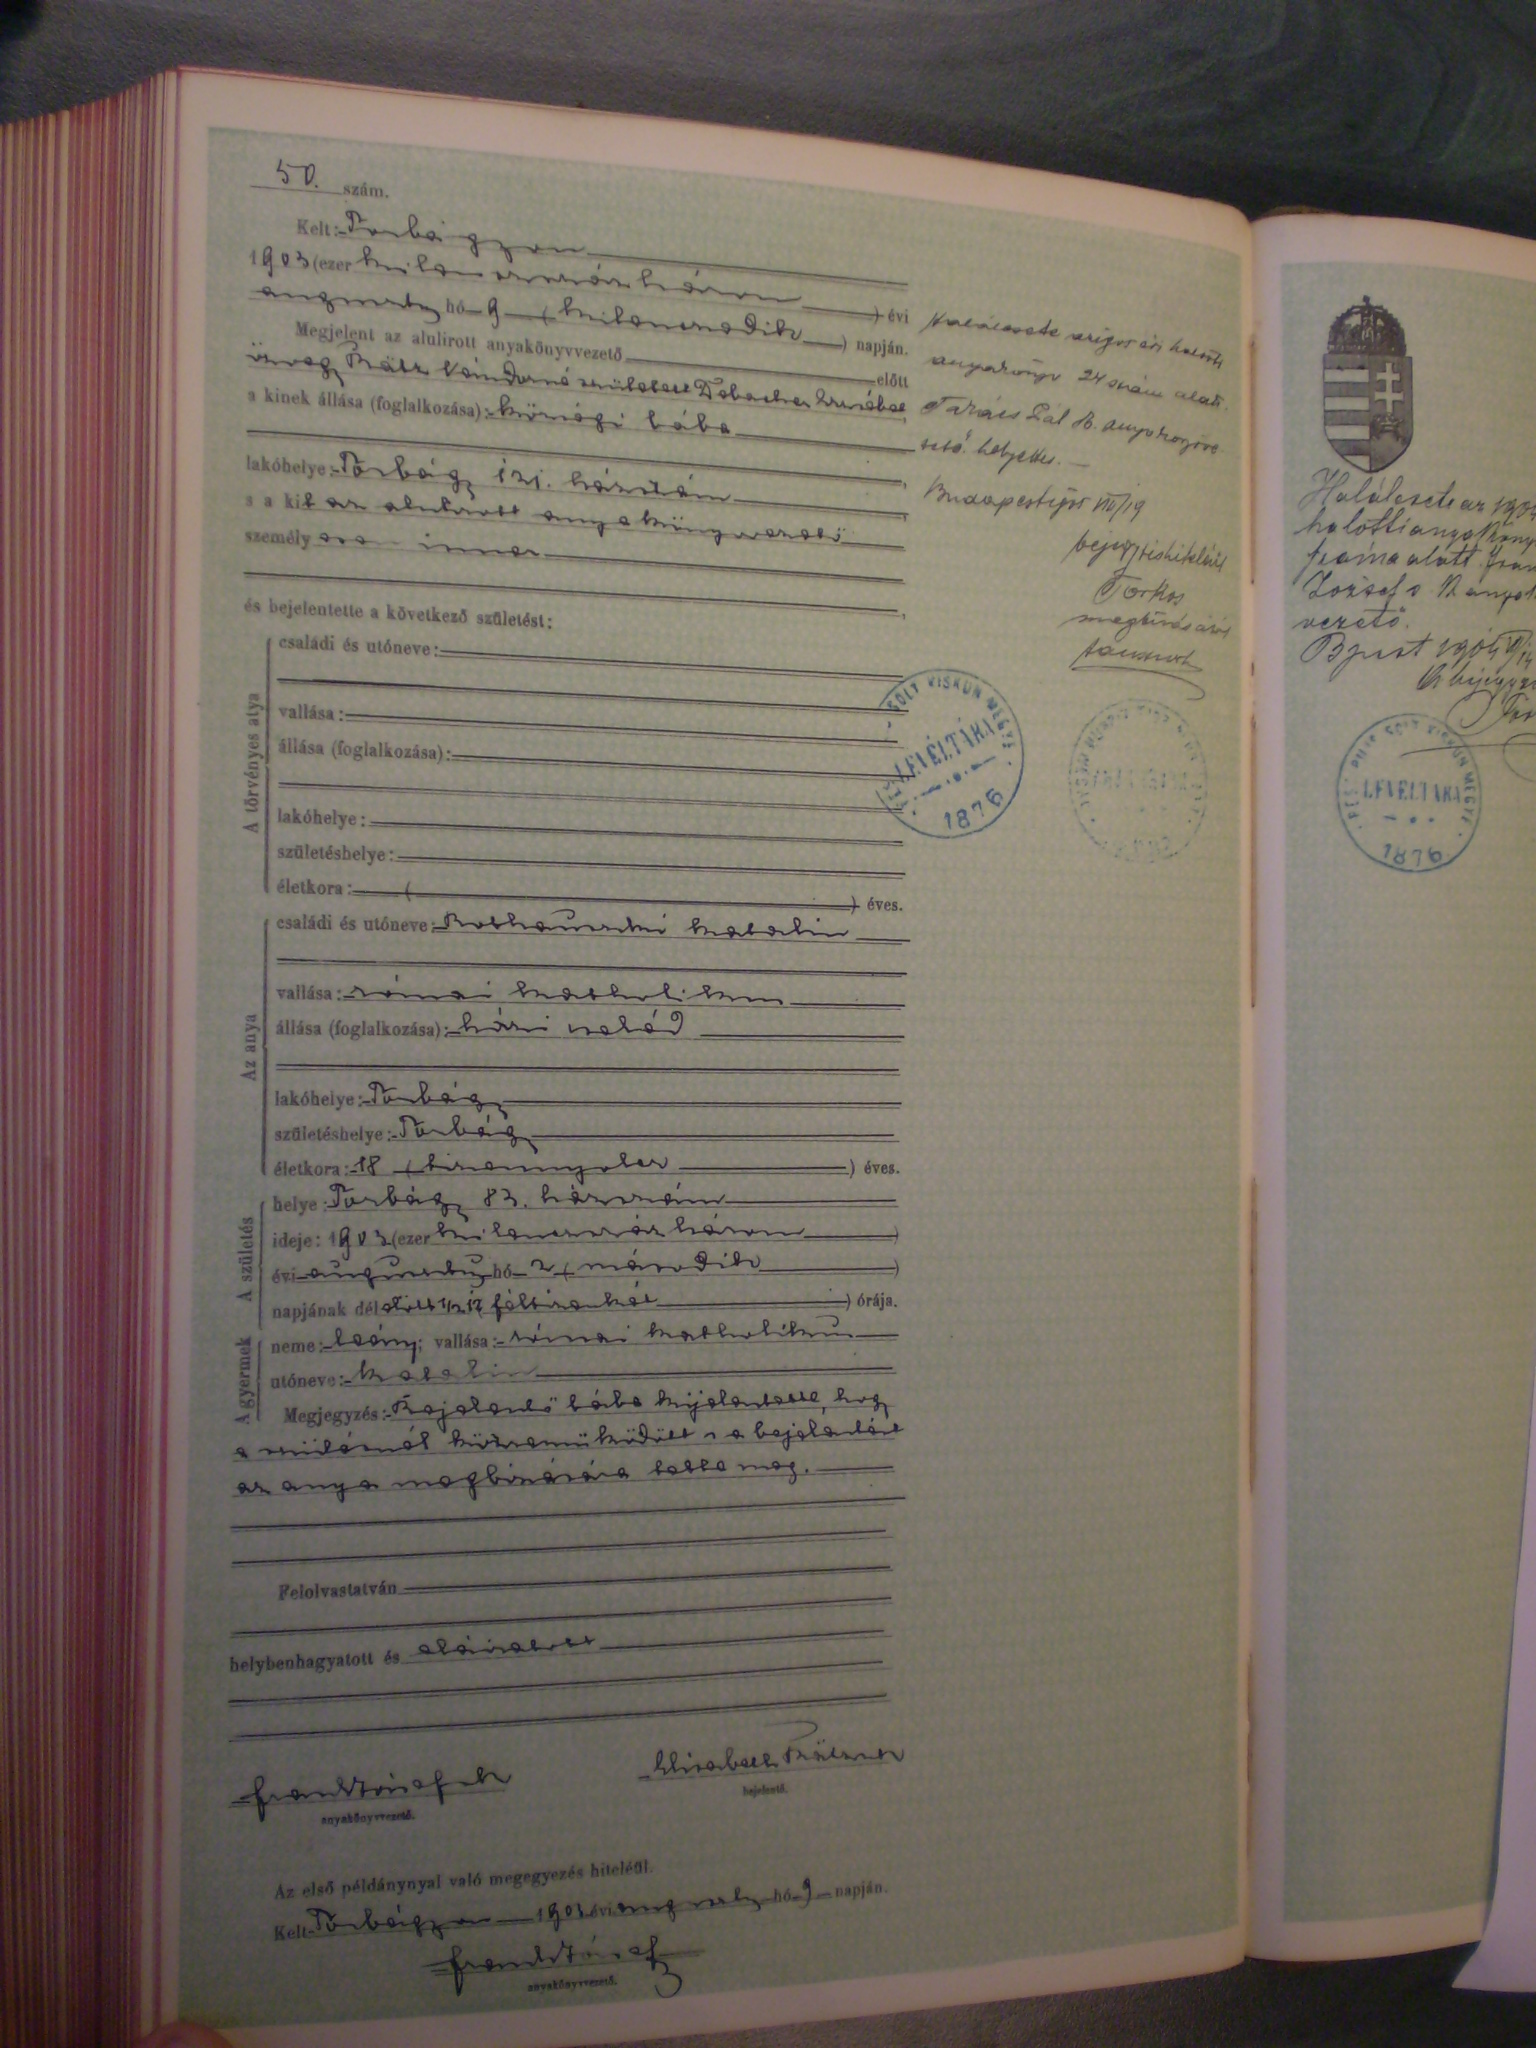 50. szám.
Kelt: Torbágyon
1903 (ezer kilencszázhárom
) évi
augusztus hó 9 (kilencedik) napján.
Megjelent az alulirott anyakönyvvezető előtt
özvegy Rätz Nándorné született Erzsébet
a kinek állása (foglalkozása): községi bába
lakóhelye: Torbágy 121. házszám
s a kit az alulirott anyakönyvvezető
személy esen ismer
és bejelentette a következő születést:
A törvényes atya
családi és utóneve:
vallása:
állása (foglalkozása):
lakóhelye:
születéshelye:
életkora: ( ) éves.
Az anya
családi és utóneve: Katalin
vallása: római katholikus
állása (foglalkozása): házi cseléd
lakóhelye: Torbágy
születéshelye: Torbágy
életkora: 18 (tizennyolcz) éves.
A születés
helye: Torbágy 83. házszám
ideje: 1903 (ezer kilencszázhárom)
évi augusztus hó 2 (második)
napjának délelőtt 1/2 12 féltizenkét) órája.
A gyermek
neme: leány; vallása: római katholikus
utóneve: Katalin
Megjegyzés: Bejelentő bába kijelentette, hogy
a szülésnél közreműködött s a bejelentést
az anya megbizására tette meg.
Felolvastatván
helybenhagyatott és aláiratott
Frank József
anyakönyvvezető.
Elisabeth
bejelentő.
Az első példánynyal való megegyezés hiteléül.
Kelt Torbágyon 1903 évi augusztus hó 9 napján.
Frank József
anyakönyvvezető.
Halálesete halotti
anyakönyv 24 szám alatt.
Takács Pál h. anyakönyvve
zető helyettes.
Budapest VIII/19
Torkos
megbizásából
PEST PILIS SOLT KISKUN MEGYE
LEVÉLTÁRA
1876
Halálesete az 190
halotti anyaköny
száma alatt. Fran
József s. k. anyak
vezető.
Bpest
PEST PILIS SOLT KISKUN MEGYE
LEVÉLTÁRA
1876